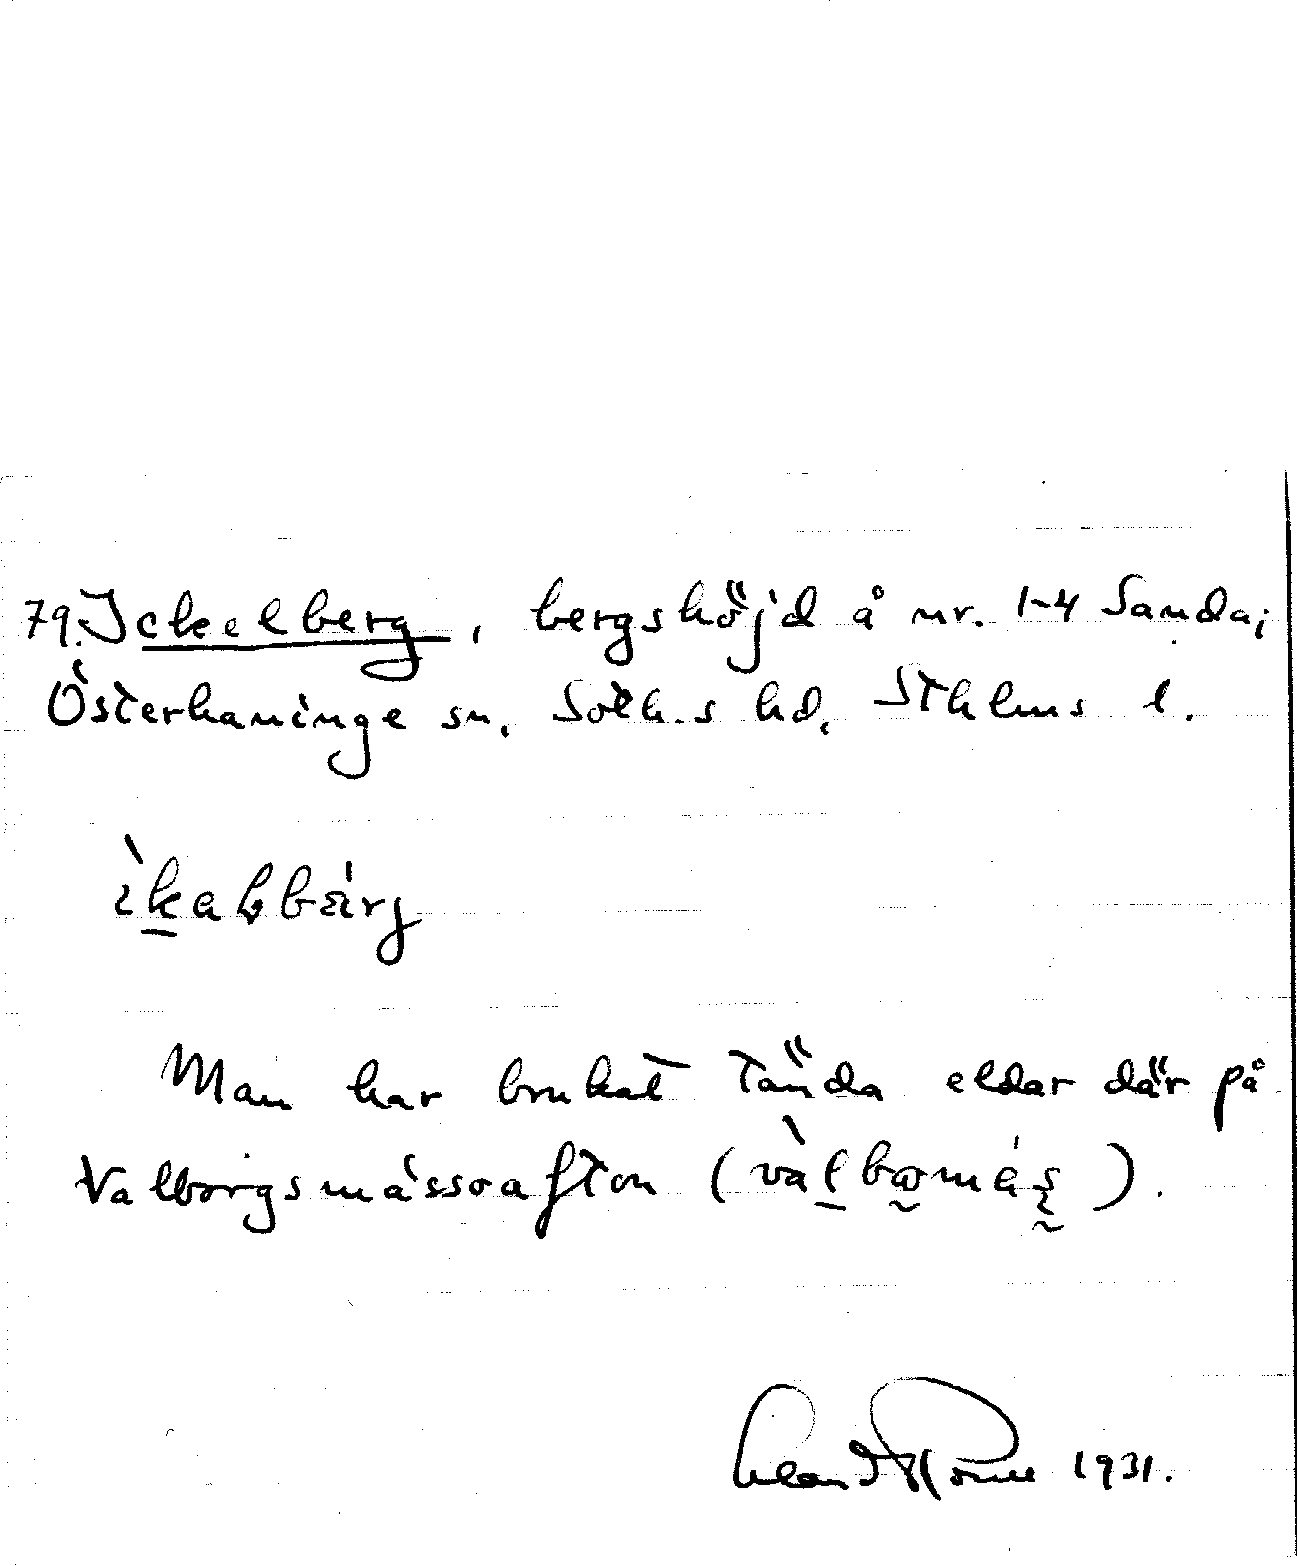 79. Ickelberg, bergshöjd å nr. 1-4 Sanda;
Österhaninge sn, Soth.s hd, Sthlms l.
ìkabbä́rj
Man har brukat tända eldar där på
Valborgsmässoafton (
).
1931.